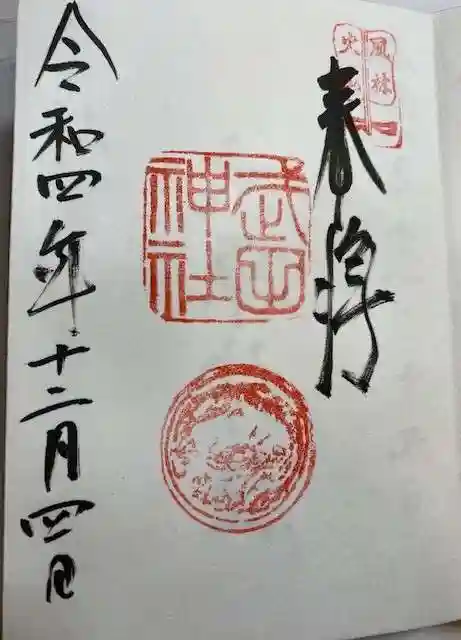 風林
火山
奉拝
武田
神社
令和四年十二月四日